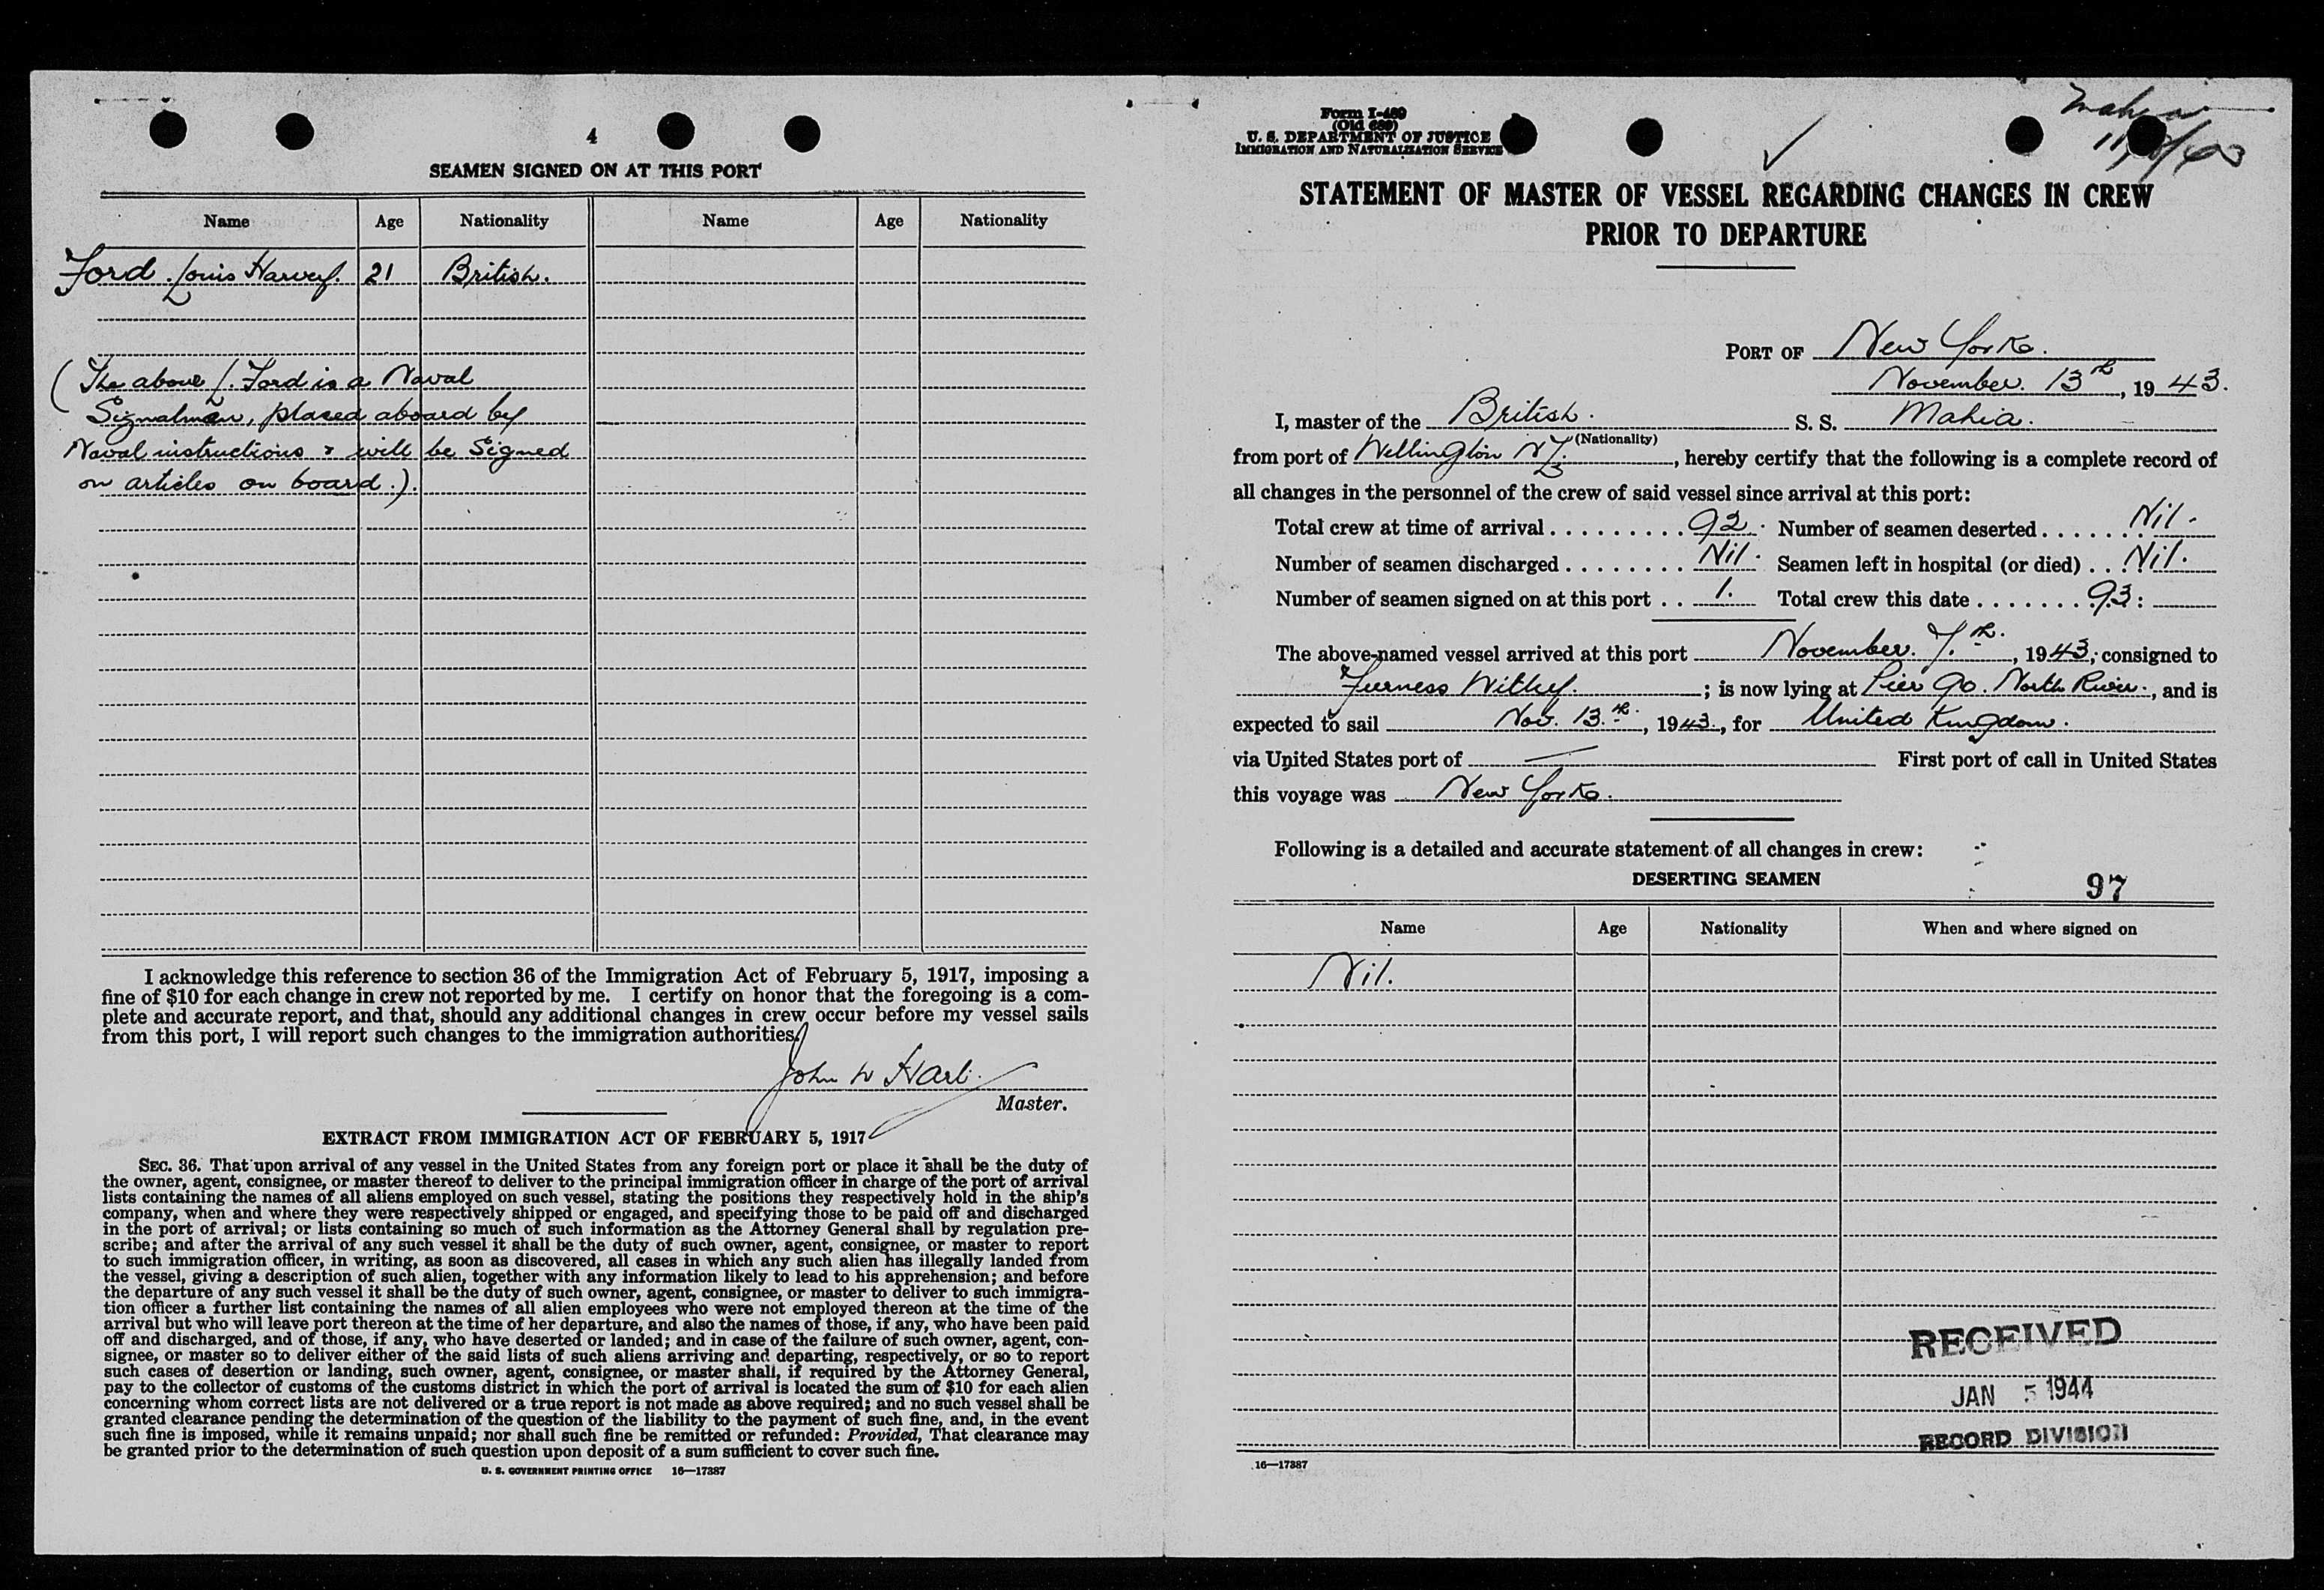 4
SEAMEN SIGNED ON AT THIS PORT
Name Age Nationality Name Age Nationality
Ford. Louis Harvey. 21 British.
(The above L. Ford is a Naval
Signalman, placed aboard by
Naval instructions & will be Signed
on articles on board.).
I acknowledge this reference to section 36 of the Immigration Act of February 5, 1917, imposing a
fine of $10 for each change in crew not reported by me. I certify on honor that the foregoing is a com-
plete and accurate report, and that, should any additional changes in crew occur before my vessel sails
from this port, I will report such changes to the immigration authorities.
John W Hart.
Master.
EXTRACT FROM IMMIGRATION ACT OF FEBRUARY 5, 1917
SEC. 36. That upon arrival of any vessel in the United States from any foreign port or place it shall be the duty of
the owner, agent, consignee, or master thereof to deliver to the principal immigration officer in charge of the port of arrival
lists containing the names of all aliens employed on such vessel, stating the positions they respectively hold in the ship's
company, when and where they were respectively shipped or engaged, and specifying those to be paid off and discharged
in the port of arrival; or lists containing so much of such information as the Attorney General shall by regulation pre-
scribe; and after the arrival of any such vessel it shall be the duty of such owner, agent, consignee, or master to report
to such immigration officer, in writing, as soon as discovered, all cases in which any such alien has illegally landed from
the vessel, giving a description of such alien, together with any information likely to lead to his apprehension; and before
the departure of any such vessel it shall be the duty of such owner, agent, consignee, or master to deliver to such immigra-
tion officer a further list containing the names of all alien employees who were not employed thereon at the time of the
arrival but who will leave port thereon at the time of her departure, and also the names of those, if any, who have been paid
off and discharged, and of those, if any, who have deserted or landed; and in case of the failure of such owner, agent, con-
signee, or master so to deliver either of the said lists of such aliens arriving and departing, respectively, or so to report
such cases of desertion or landing, such owner, agent, consignee, or master shall, if required by the Attorney General,
pay to the collector of customs of the customs district in which the port of arrival is located the sum of $10 for each alien
concerning whom correct lists are not delivered or a true report is not made as above required; and no such vessel shall be
granted clearance pending the determination of the question of the liability to the payment of such fine, and, in the event
such fine is imposed, while it remains unpaid; nor shall such fine be remitted or refunded: Provided, That clearance may
be granted prior to the determination of such question upon deposit of a sum sufficient to cover such fine.
U. S. GOVERNMENT PRINTING OFFICE 16—17387
Form I-489
(Old 689)
U. S. DEPARTMENT OF JUSTICE
IMMIGRATION AND NATURALIZATION SERVICE
Mahia
STATEMENT OF MASTER OF VESSEL REGARDING CHANGES IN CREW
PRIOR TO DEPARTURE
PORT OF New York.
November. 13th, 1943.
I, master of the British. S. S. Mahia.
(Nationality)
from port of Wellington NZ., hereby certify that the following is a complete record of
all changes in the personnel of the crew of said vessel since arrival at this port:
Total crew at time of arrival . . . . . . . . . 92. Number of seamen deserted . . . . . . . Nil.
Number of seamen discharged . . . . . . . . Nil. Seamen left in hospital (or died) . . . Nil.
Number of seamen signed on at this port . . 1. Total crew this date . . . . . . . 93:
The above-named vessel arrived at this port November. 7.th., 1943; consigned to
Furness Withy. ; is now lying at Pier 90. North River., and is
expected to sail Nov. 13.th., 1943., for United Kingdom.
via United States port of — First port of call in United States
this voyage was New York.
Following is a detailed and accurate statement of all changes in crew:
DESERTING SEAMEN
97
Name Age Nationality When and where signed on
Nil.
RECEIVED
JAN 5 1944
RECORD DIVISION
16—17387